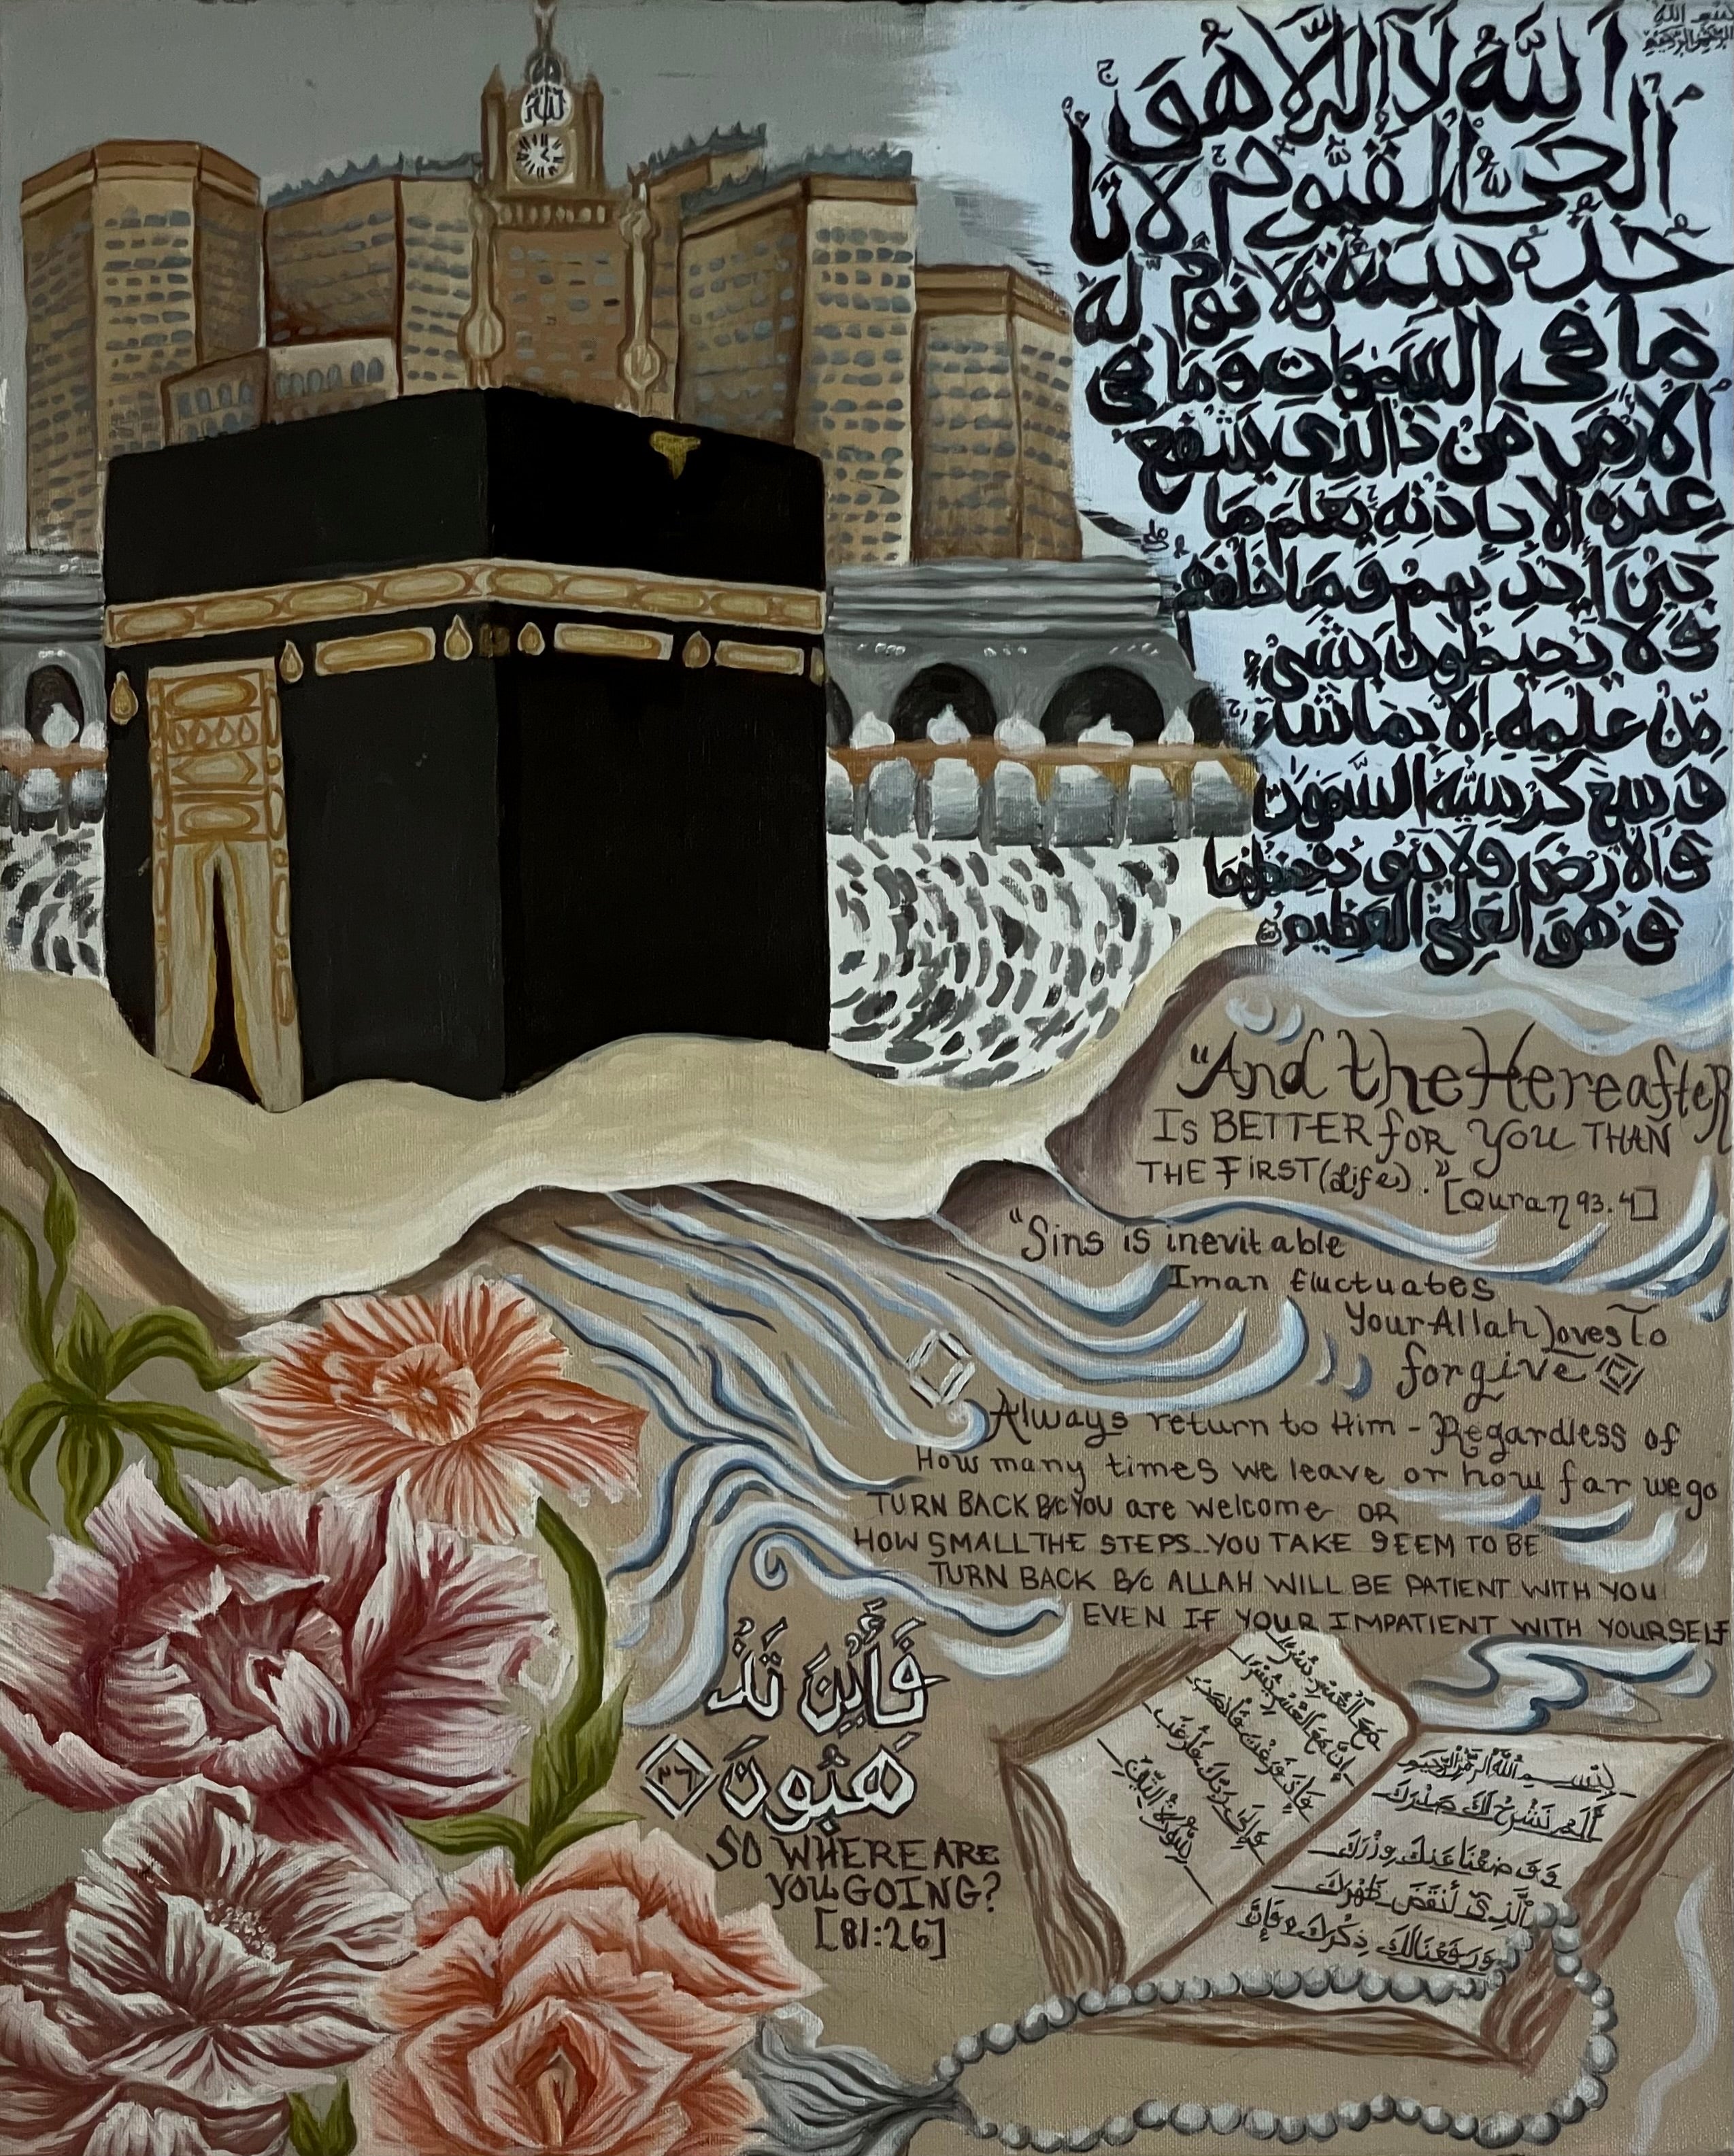 بسم الله
الرحمن الرحيم
اَللّٰهُ لَاۤ اِلٰهَ اِلَّا هُوَ
الۡحَیُّ الۡقَیُّوۡمُ لَا تَاۡ
خُذُهٗ سِنَةٌ وَّلَا نَوۡمٌ لَهٗ
مَا فِی السَّمٰوَاتِ وَمَا فِی
الۡاَرۡضِ مَنۡ ذَا الَّذِیۡ یَشۡفَعُ
عِنۡدَهٗ اِلَّا بِاِذۡنِهٖ یَعۡلَمُ مَا
بَیۡنَ اَیۡدِیۡهِمۡ وَمَا خَلۡفَهُمۡ
وَلَا یُحِیۡطُوۡنَ بِشَیۡءٍ
مِّنۡ عِلۡمِهٖ اِلَّا بِمَا شَآءَ
وَسِعَ كُرۡسِیُّهُ السَّمٰوٰتِ
وَالۡاَرۡضَ وَلَا یَـُٔوۡدُهٗ حِفۡظُهُمَا
وَهُوَ الۡعَلِیُّ الۡعَظِیۡمُ
"And the Hereafter
Is BETTER for You THAN
THE FIRST (Life)." [Quran 93.4]
"Sins is inevitable
Iman fluctuates
Your Allah loves To
forgive
Always return to Him - Regardless of
How many times we leave or how far we go
TURN BACK B/C YOU are welcome OR
HOW SMALL THE STEPS YOU TAKE SEEM TO BE
TURN BACK B/C ALLAH WILL BE PATIENT WITH YOU
EVEN IF YOUR IMPATIENT WITH YOURSELF
فَأَيْنَ تَذْ
هَبُونَ ٢٦
SO WHERE ARE
YOU GOING?
[81:26]
بِسْمِ اللّٰهِ الرَّحْمٰنِ الرَّحِيمِ
أَلَمْ نَشْرَحْ لَكَ صَدْرَكَ
وَوَضَعْنَا عَنْكَ وِزْرَكَ
الَّذِيْ أَنْقَضَ ظَهْرَكَ
وَرَفَعْنَا لَكَ ذِكْرَكَ فَإِنَّ
مَعَ الْعُسْرِ يُسْرًا
إِنَّ مَعَ الْعُسْرِ يُسْرًا
فَإِذَا فَرَغْتَ فَانْصَبْ
وَإِلَى رَبِّكَ فَارْغَبْ